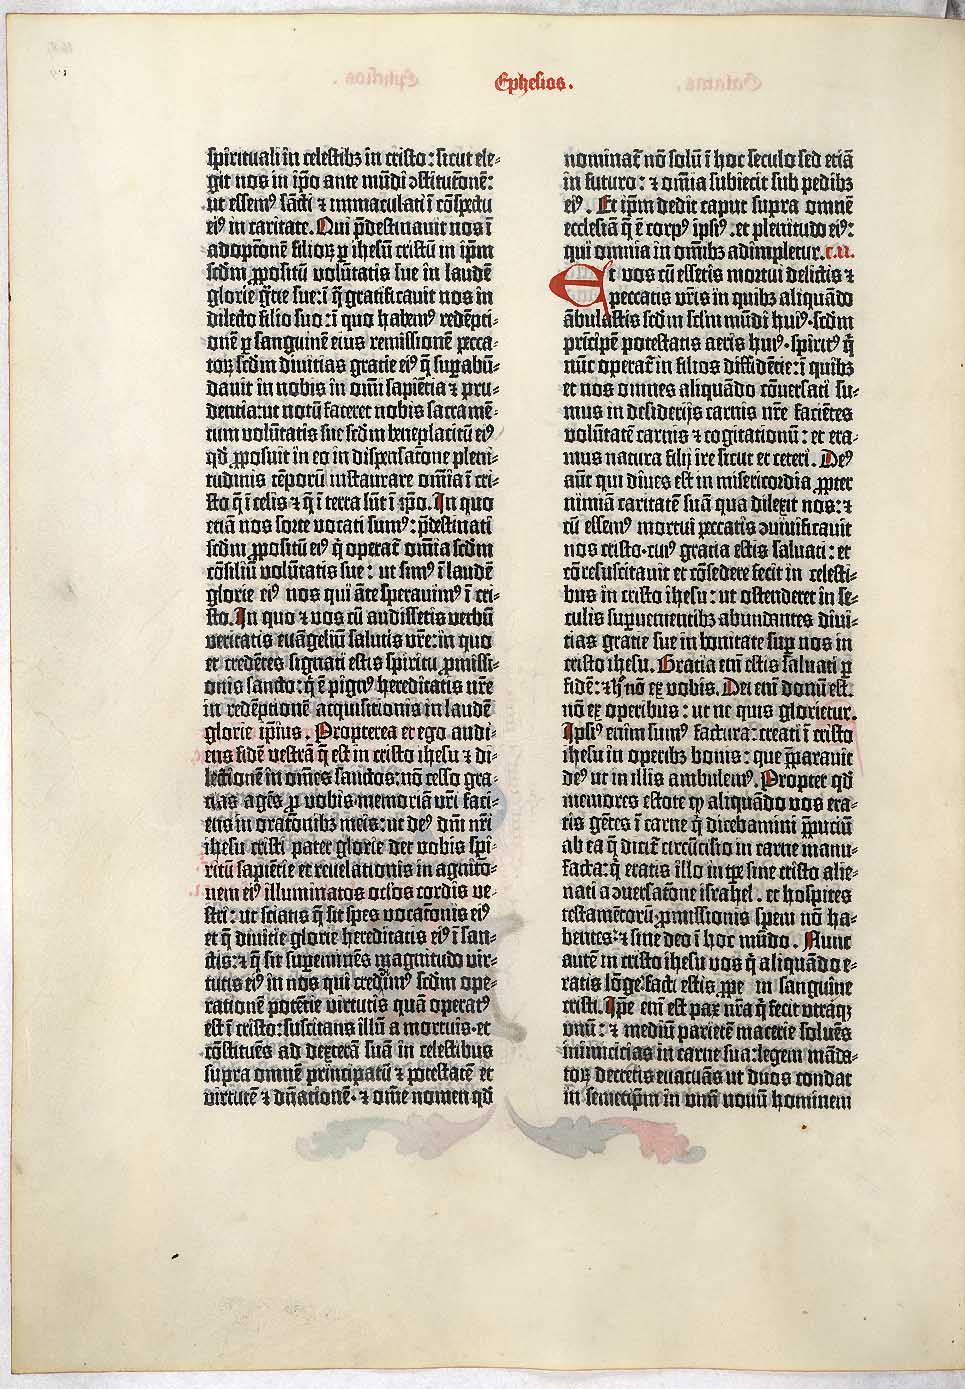 Ephesios.
spirituali in celestibꝫ in cristo: sicut ele-
git nos in ip̄o ante mūdi ↄstitut̄onē:
ut essemꝰ sācti ⁊ immaculati ī cōspectu
eiꝰ in caritate. Qui p̄destinavit nos ī
adopt̄onē filioꝝ ꝑ ihesū cristū in ip̄m
scd̄m ꝓpositū volūtatis sue in laudē
glorie gr̄tie sue: ī q̄ gratificavit nos in
dilecto filio suo: ī quo habemꝰ redēpti-
onē ꝑ sanguinē eius remissionē pecca-
toꝝ scd̄m divitias gratie eiꝰ q̄ suꝑabū-
davit in nobis in om̄i sapiētia ⁊ pru-
dentia: ut notū faceret nobis sacramē-
tum volūtatis sue scd̄m beneplacitū eiꝰ
qd̄ ꝓposuit in eo in dispensat̄one pleni-
tudinis tēporū instaurare om̄ia ī cri-
sto q̄ ī celis ⁊ q̄ ī terra sūt ī ip̄o. In quo
etiā nos sorte vocati sumꝰ: p̄destinati
scd̄m ꝓpositū eiꝰ q̇ operat̄ om̄ia scd̄m
cōsiliū volūtatis sue: ut simꝰ ī laudē
glorie eiꝰ nos qui āte speravimꝰ ī cri-
sto. In quo ⁊ vos cū audissetis verbū
veritatis euāgeliū salutis vr̄e: in quo
et credētes signati estis spiritu ꝓmissi-
onis sancto: q̄ ē pignꝰ hereditatis nr̄e
in redēptionē acquisitionis in laudē
glorie ip̄ius. Propterea et ego audi-
ens fidē vestrā q̄ est in cristo ihesu ⁊ di-
lectionē in om̄es sanctos: nō cesso gra-
tias agēs ꝓ vobis memoriā vr̄i faci-
ens in orat̄onibꝫ meis: ut deꝰ dn̄i nr̄i
ihesu cristi pater glorie det vobis spī-
ritū sapiētie et revelationis in agnit̄o-
nem eiꝰ illuminatos oc̄los cordis ve-
stri: ut sciatis q̄ sit spes vocat̄onis eiꝰ
et q̄ divitie glorie hereditatis eiꝰ ī san-
ctis: ⁊ q̄ sit suꝑeminēs magnitudo vir-
tutis eiꝰ in nos qui credimꝰ scd̄m ope-
rationē potētie virtutis quā operatꝰ
est ī cristo: suscitans illū a mortuis· et
cōstituēs ad dexterā suā in celestibus
supra omnē principatū ⁊ potestatē et
virtutē ⁊ dn̄ationē· ⁊ om̄e nomen qd̄
nominat̄ nō solū ī hoc seculo sed etiā
in futuro: ⁊ om̄ia subiecit sub pedibꝫ
eiꝰ. Et ip̄m dedit caput supra omnē
ecclesiā q̄ ē corpꝰ ipsiꝰ. et plenitudo eiꝰ:
qui omnia in om̄ibꝫ adimpletur. c.ii.
Et vos cū essetis mortui delictis ⁊
peccatis vr̄is in quibꝫ aliquādo
ābulastis scd̄m sclm̄ mūdi huiꝰ· scd̄m
prīcipē potestatis aeris huiꝰ· spiritꝰ q̇
nūc operat̄ in filios diffidētie: ī quibꝫ
et nos omnes aliquādo cōversati su-
mus in desiderijs carnis nr̄e faciētes
volūtatē carnis ⁊ cogitationū: et era-
mus natura filij ire sicut et ceteri. Deꝰ
aūt qui dives est in misericordia ꝓpter
nimiam caritatē suā qua dilexit nos: ⁊
cū essemꝰ mortui peccatis ↄvivificavit
nos cristo· cuiꝰ gratia estis salvati: et
cōresuscitavit et cōsedere fecit in celesti-
bus in cristo ihesu: ut ostenderet in se-
culis suꝑvenientibꝫ abundantes divi-
tias gratie sue in bonitate suꝑ nos in
cristo ihesu. Gratia eni estis salvati ꝑ
fidē: ⁊ h̄ nō ex vobis. Dei eni donū est.
nō ex operibus: ut ne quis glorietur.
Ipsiꝰ enim sumꝰ factura: creati ī cristo
ihesu in operibꝫ bonis: que p̄paravit
deꝰ ut in illis ambulemꝰ. Propter qd̄
memores estote ꝙ aliquādo vos era-
tis gētes ī carne q̇ dicebamini p̄puciū
ab ea q̄ dicit̄ circūcisio in carne manu-
facta: q̇ eratis illo in tp̄e sine cristo alie-
nati a ↄversat̄one israhel. et hospites
testamētorū· ꝓmissionis spem nō ha-
bentes: ⁊ sine deo ī hoc mūdo. Nunc
autē in cristo ihesu vos q̇ aliquādo e-
ratis lōge: facti estis ꝓpe in sanguine
cristi. Ip̄e eni est pax nr̄a q̇ fecit utraqꝫ
unū: ⁊ mediū parietē macerie solvēs
inimicicias in carne sua: legem māda-
toꝝ decretis evacuās ut duos condat
in semetip̄m in unū novū hominem